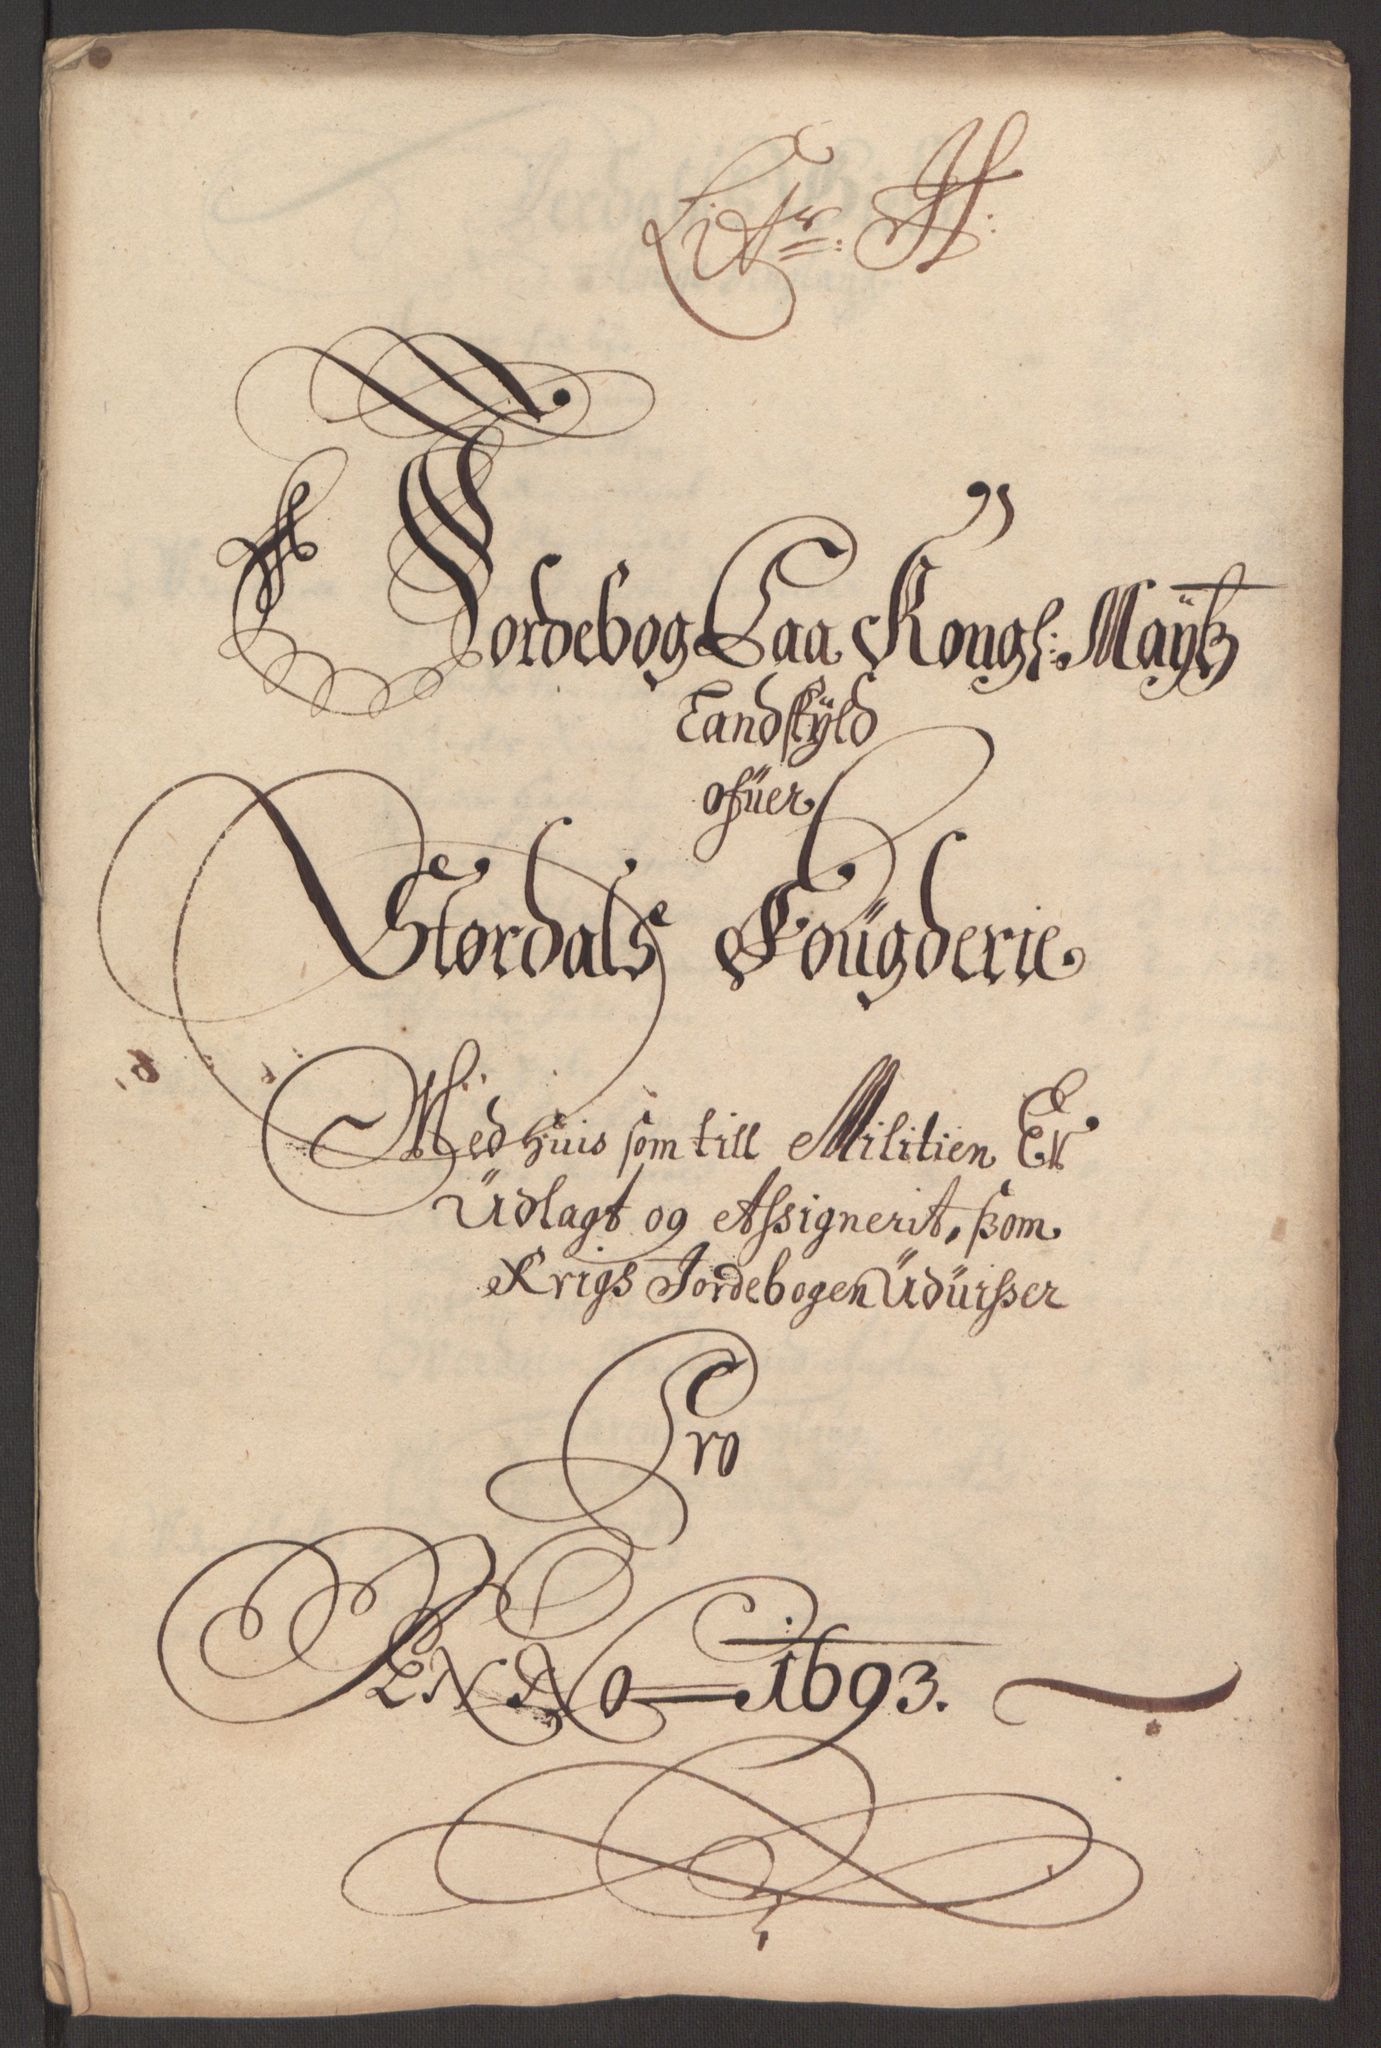 Litr: H:
Jordebog Paa Kongl: Maÿtz
Landskÿld
ofüer
Størdals Foügderie
Med huis som till Militien Er
Üdlagt og Assignerit, som
Krigs Jordebogen Üdüisser
Pro
ANNO 1693.